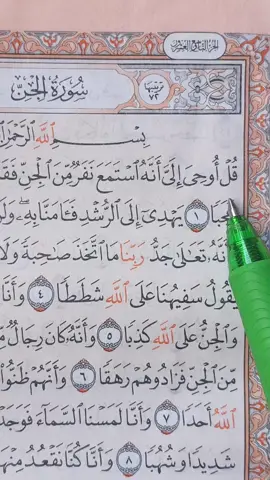 الجزء التاسع والعشرون
سُورَةُ الْجِنِّ
بِسْمِ اللَّهِ الرَّحْمَٰنِ
قُلْ أُوحِيَ إِلَيَّ أَنَّهُ اسْتَمَعَ نَفَرٌ مِّنَ الْجِنِّ فَقَا
عَجَبًا ١ يَهْدِي إِلَى الرُّشْدِ فَآمَنَّا بِهِ ۖ وَلَن
أَنَّهُ تَعَالَىٰ جَدُّ رَبِّنَا مَا اتَّخَذَ صَاحِبَةً وَلَا
يَقُولُ سَفِيهُنَا عَلَى اللَّهِ شَطَطًا ٤ وَأَنَّا
وَالْجِنُّ عَلَى اللَّهِ كَذِبًا ٥ وَأَنَّهُ كَانَ رِجَالٌ مِّ
مِّنَ الْجِنِّ فَزَادُوهُمْ رَهَقًا ٦ وَأَنَّهُمْ ظَنُّوا
اللَّهُ أَحَدًا ٧ وَأَنَّا لَمَسْنَا السَّمَاءَ فَوَجَدْ
شَدِيدًا وَشُهُبًا ٨ وَأَنَّا كُنَّا نَقْعُدُ مِنْهَا